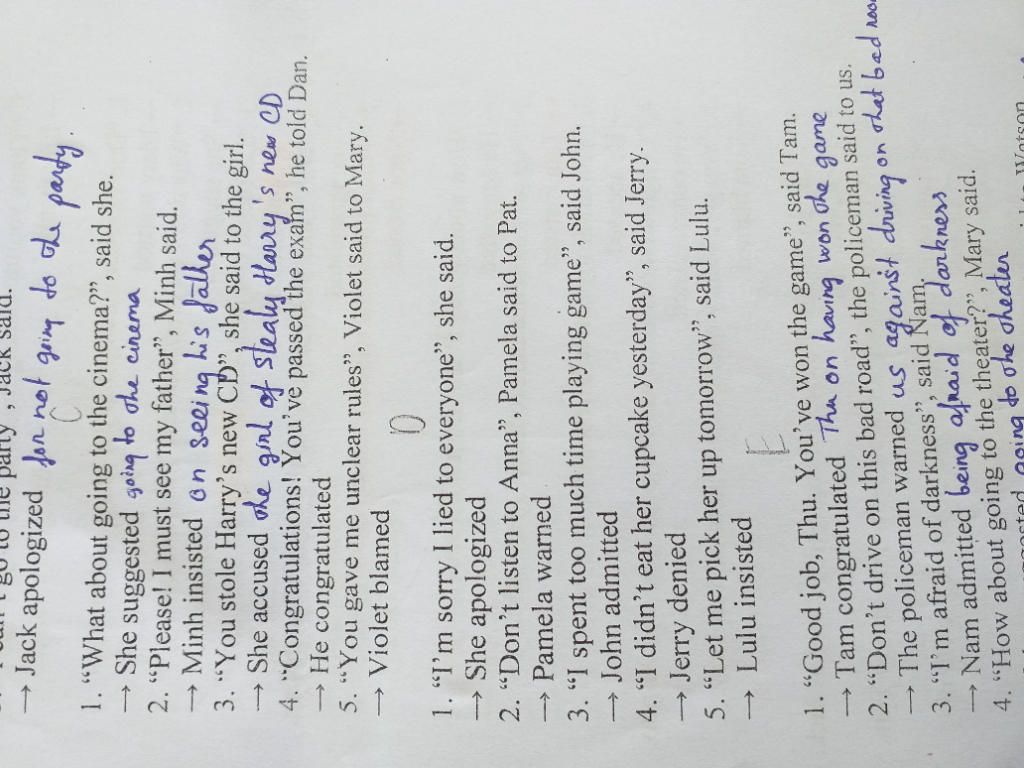 go to the party", Jack said.
→ Jack apologized for not going to the party.
C
1. "What about going to the cinema?", said she.
→ She suggested going to the cinema
2. "Please! I must see my father", Minh said.
→ Minh insisted on seeing his father
3. "You stole Harry's new CD", she said to the girl.
→ She accused the girl of stealy Harry's new CD
4. "Congratulations! You've passed the exam", he told Dan.
→ He congratulated
5. "You gave me unclear rules", Violet said to Mary.
→ Violet blamed
D
1. "I'm sorry I lied to everyone", she said.
→ She apologized
2. "Don't listen to Anna", Pamela said to Pat.
→ Pamela warned
3. "I spent too much time playing game", said John.
→ John admitted
4. "I didn't eat her cupcake yesterday", said Jerry.
→ Jerry denied
5. "Let me pick her up tomorrow", said Lulu.
→ Lulu insisted
E
1. "Good job, Thu. You've won the game", said Tam.
→ Tam congratulated Thu on having won the game
2. "Don't drive on this bad road", the policeman said to us.
→ The policeman warned us against driving on that bad
3. "I'm afraid of darkness", said Nam.
→ Nam admitted being afraid of darkness
4. "How about going to the theater?", Mary said.
going to the theater
Watson